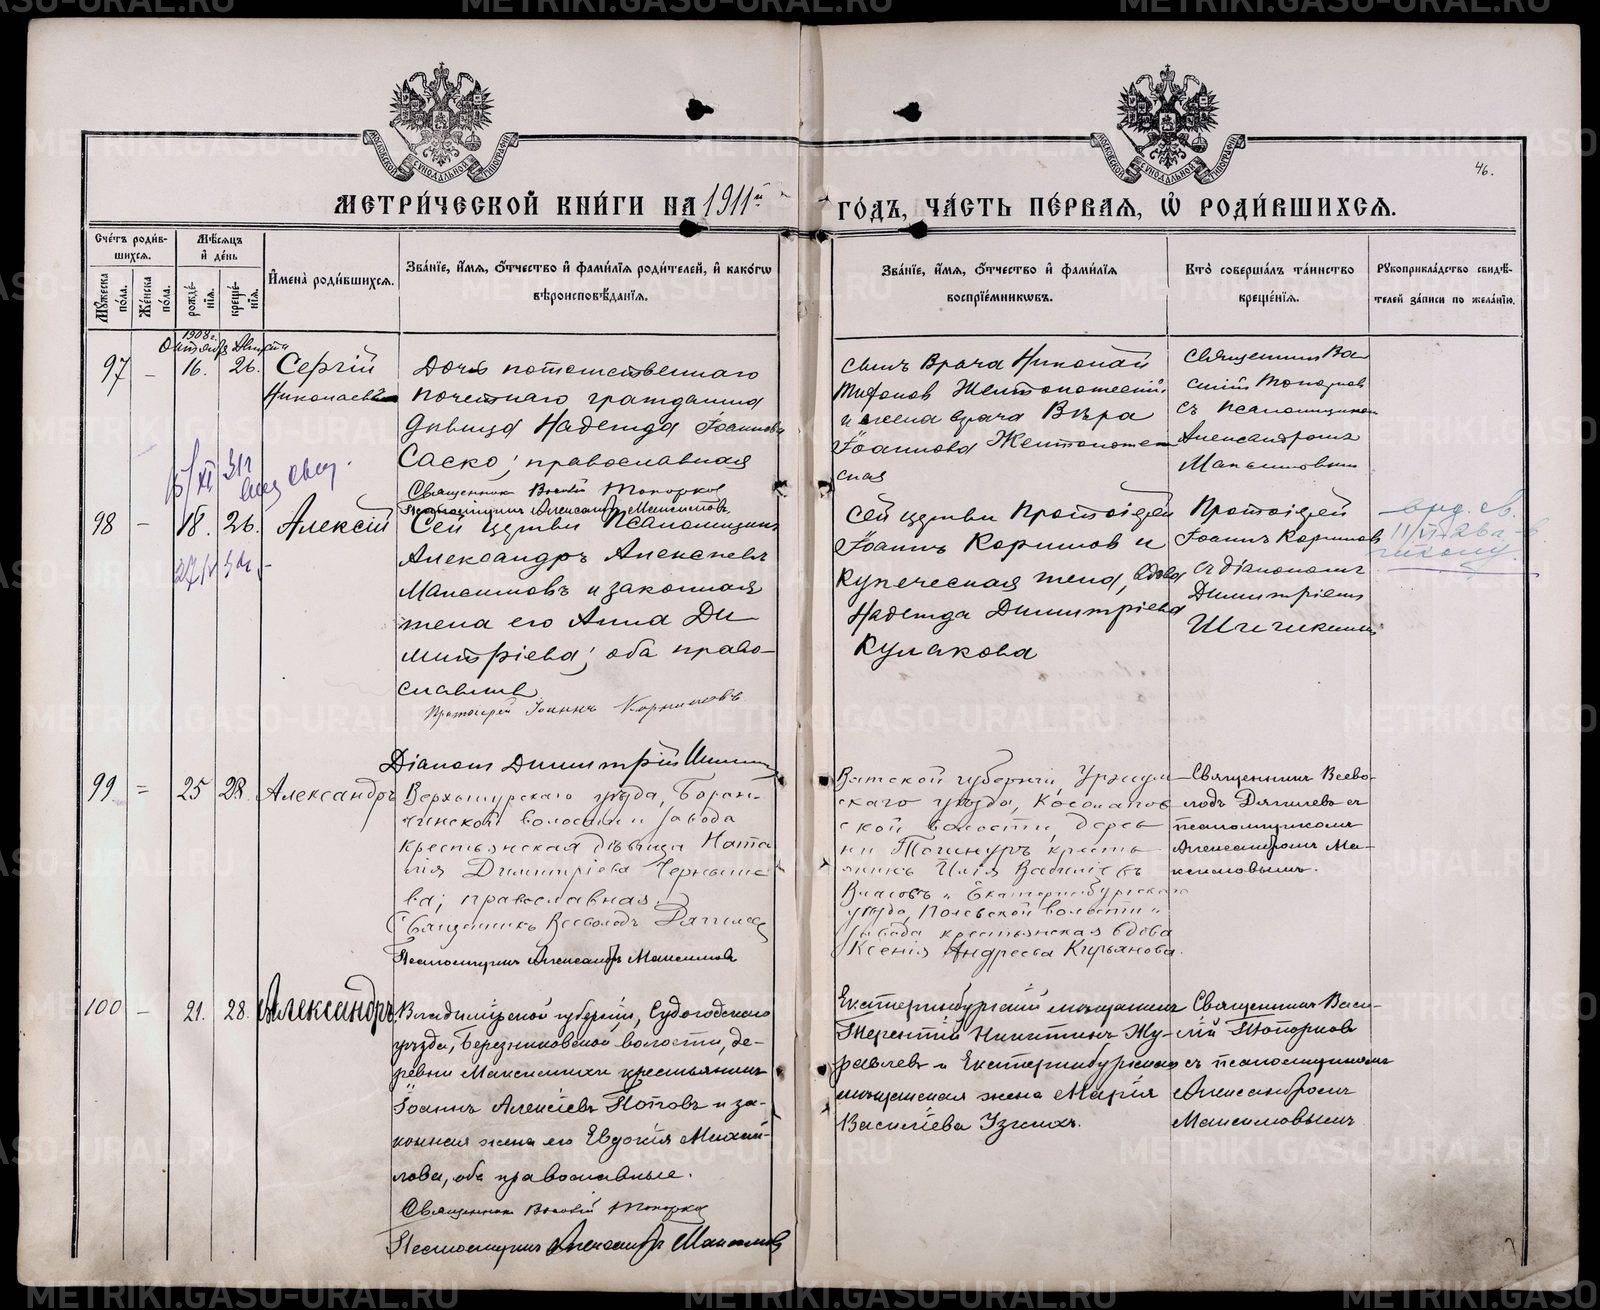 МЕТРИ́ЧЕСКОЙ КНИ́ГИ НА 1911й
ГО́ДЪ, ЧА́СТЬ ПЕ́РВАЯ, Ѽ РОДИ́ВШИХСЯ.
46.
Сче́тъ роди́в-
шихся.
Мѣ́сяцъ
и де́нь
Му́жеска
по́ла.
Же́нска
по́ла.
рожде́-
нїя.
креще́-
нїя.
И́мена̀ роди́вшихся.
Зва́нїе, и́мя, о́тчество и фами́лїя роди́телей, и како́гѡ
вѣроисповѣ́данїя.
Зва́нїе, и́мя, о́тчество и фами́лїя
воспрїе́мникѡвъ.
Кто̀ соверша́лъ та́инство
креще́нїя.
Рꙋкоприкла́дство свидѣ́-
телей за́писи по жела́нїю.
1908 г.
Октября Августа
97 – 16. 26. Сергій
Николаевъ
Дочь потомственнаго
почетнаго гражданина
дѣвица Надежда Іоаннова
Саско; православная
Священникъ Василій Топорковъ
Псаломщикъ Александръ Максимовъ
Сынъ врача Николай
Желтоножскій
и жена врача Вѣра
Іоаннова Желтонож-
ская
Священникъ Ва-
силій Топорковъ
съ псаломщикомъ
Александромъ
Максимовымъ
98 – 18. 26. Алексій
Сей церкви Псаломщикъ
Александръ Алексѣевъ
Максимовъ и законная
жена его Анна Ди-
митріева; оба право-
славные
Протоіерей Іоаннъ Корниловъ
Діаконъ Димитрій
Сей церкви Протоіерей
Іоаннъ Корниловъ и
купеческая жена, вдова
Надежда Димитріева
Кулакова
Протоіерей
Іоаннъ Корниловъ
съ діакономъ
Димитріемъ
99 = 25 28. Александръ
Верхотурскаго уѣзда, Баран-
чинской волости и завода
крестьянская дѣвица Ната-
лія Димитріева Черныше-
ва; православная.
Священникъ Всеволодъ
Псаломщикъ Александръ Максимовъ
Вятской губерніи, Уржум-
скаго уѣзда, Косолапов-
ской волости, дерев-
ни крестья-
нинъ Илія
Власовъ и Екатеринбургскаго
уѣзда, Полевской волости и
завода крестьянская вдова
Ксенія Андреева Кирьянова.
Священникъ Всево-
лодъ съ
псаломщикомъ
Александромъ Ма-
ксимовымъ.
100 – 21. 28. Александръ
Владимірской губерніи, Судогодскаго
уѣзда, Березниковской волости, де-
ревни Максимихи крестьянинъ
Іоаннъ Алексіевъ Потовъ и за-
конная жена его Евдокія Михаи-
лова, оба православные.
Священникъ Василій Топорковъ
Псаломщикъ Александръ Максимовъ
Екатеринбургскій мѣщанинъ
Терентій Никитинъ Жу-
равлевъ и Екатеринбургская
мѣщанская жена Марія
Василіева Узкихъ.
Священникъ Васи-
лій Топорковъ
съ псаломщикомъ
Александромъ
Максимовымъ